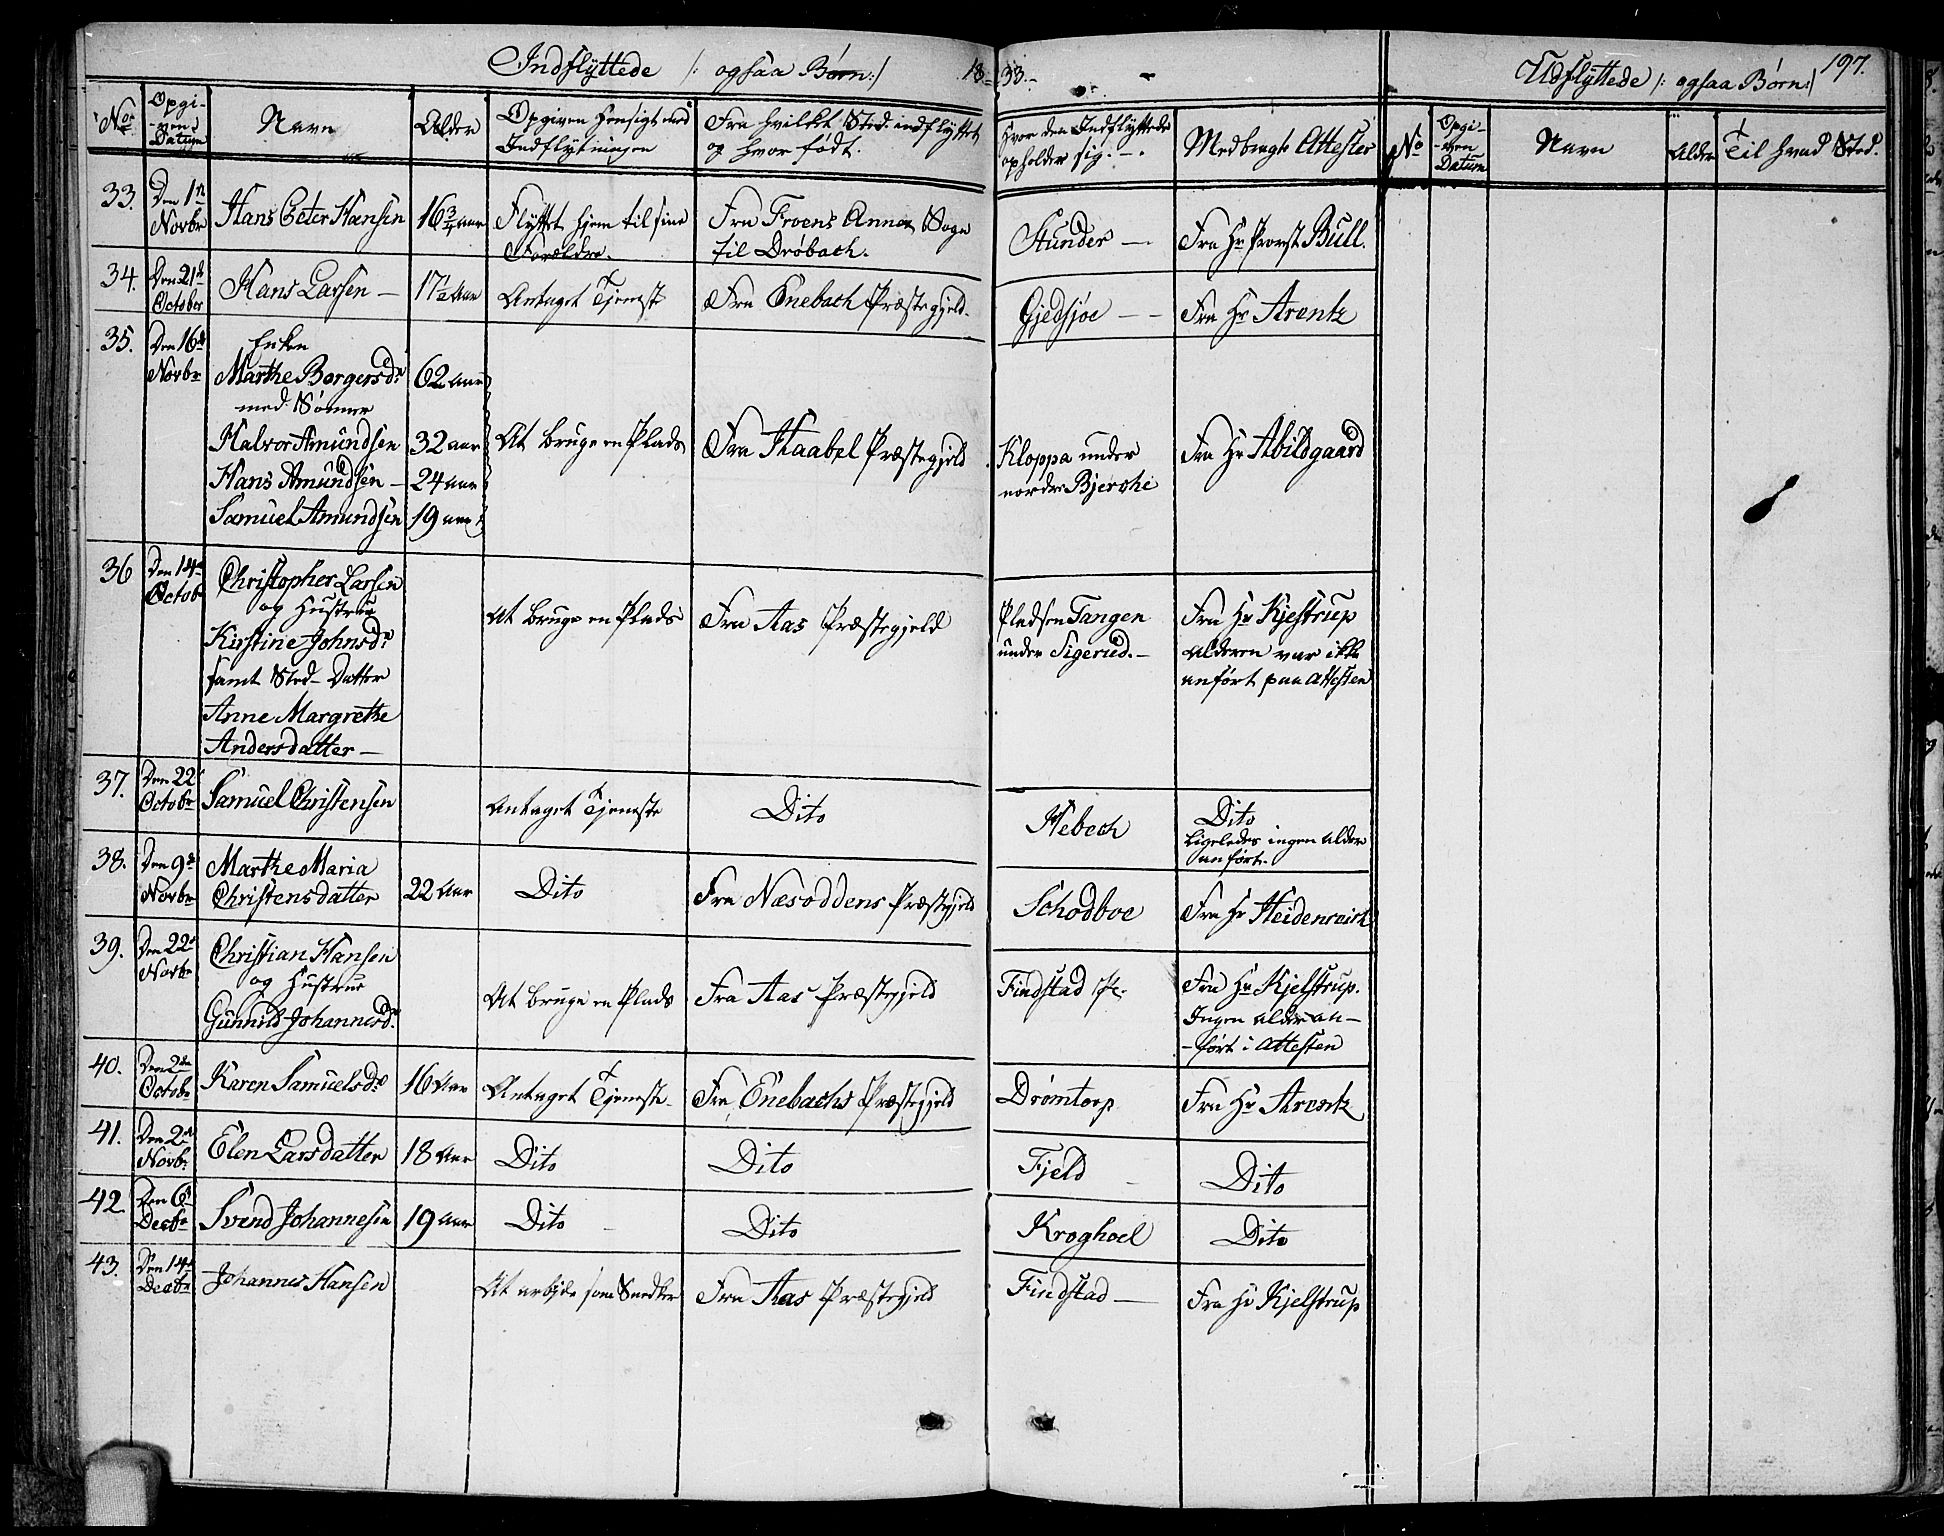 Indflyttede /: ogsaa Børn :/ 1833.
Udflyttede /: ogsaa Børn :/ 197.
No
Opgi-
-ven
Datum
Navn
Alder
Opgiven Hensigt med
Indflytningen
Fra hvilket Sted indflyttet
og hvor født.
Hvor den Indflyttede
opholder sig. -
Medbragte Attester
No
Opgi-
-ven
Datum
Navn
Alder
Til hvad Sted.
33.
Den 1n
Novbr
Hans Peter Hansen
16 3/4 aar
Flyttet hjem til sine
Forældre.
Fra Froens Annex Sogn
til Drøbach.
Stunder -
Fra Hr Provst Bull.
34.
Den 21d
October
Hans Larsen -
17 1/2 Aar
Antaget Tjeneste
Fra Enebach Præstegjeld.
Gjedsjøe - -
Fra Hr Arentz
35.
Den 16d
Novbr
Enken
Marthe Borgersdr
med Sønner
Halvor Amundsen
Hans Amundsen -
Samuel Amundsen
62 aar
32 aar
24 aar
19 aar
At bruge en Plads
Fra Haabøl Præstegjeld
Kloppa under
nordre Bjerche
Fra Hr Abildgaard
36
Den 14d
Octob
Christopher Larsen
og Hustrue
Kirstine Johnsdr
samt Sted-Datter
Anne Margrethe
Andersdatter -
At bruge en Plads
Fra Aas Præstegjeld
Pladsen Tangen
under Sigerud. -
Fra Hr Kjelstrup
Alderen var ikke
anført paa Attesten
37.
Den 22d
Octobr
Samuel Christensen
Antaget Tjeneste
Dito
Hebech
Dito
Ligeledes ingen Alder
anført.
38.
Den 9d
Novbr
Marthe Maria
Christensdatter
22 Aar
Dito
Fra Næsoddens Præstegjeld
Schodboe
Fra Hr Heidenreich
39.
Den 22d
Novbr
Christian Hansen
og Hustrue
Gunnild Johannesdr
At bruge en Plads
Fra Aas Præstegjeld
Findstad Pl.
Fra Hr Kjelstrup.
Ingen alder an-
-ført i Attesten
40.
Den 2den
Octobr
Karen Samuelsdr
16 Aar
Antaget Tjeneste-
Fra Enebachs Præstegjeld
Drømtorp
Fra Hr Arentz
41.
Den 2n
Novbr
Elen Larsdatter
18 Aar
Dito
Dito
Fjeld -
Dito
42.
Den 6d
Decbr
Svend Johannesen
19 Aar
Dito -
Dito
Kroghoel
Dito
43.
Den 14d
Decbr
Johannes Hansen
At arbeide som Snedker
Fra Aas Præstegjeld
Findstad -
Fra Hr Kjelstrup